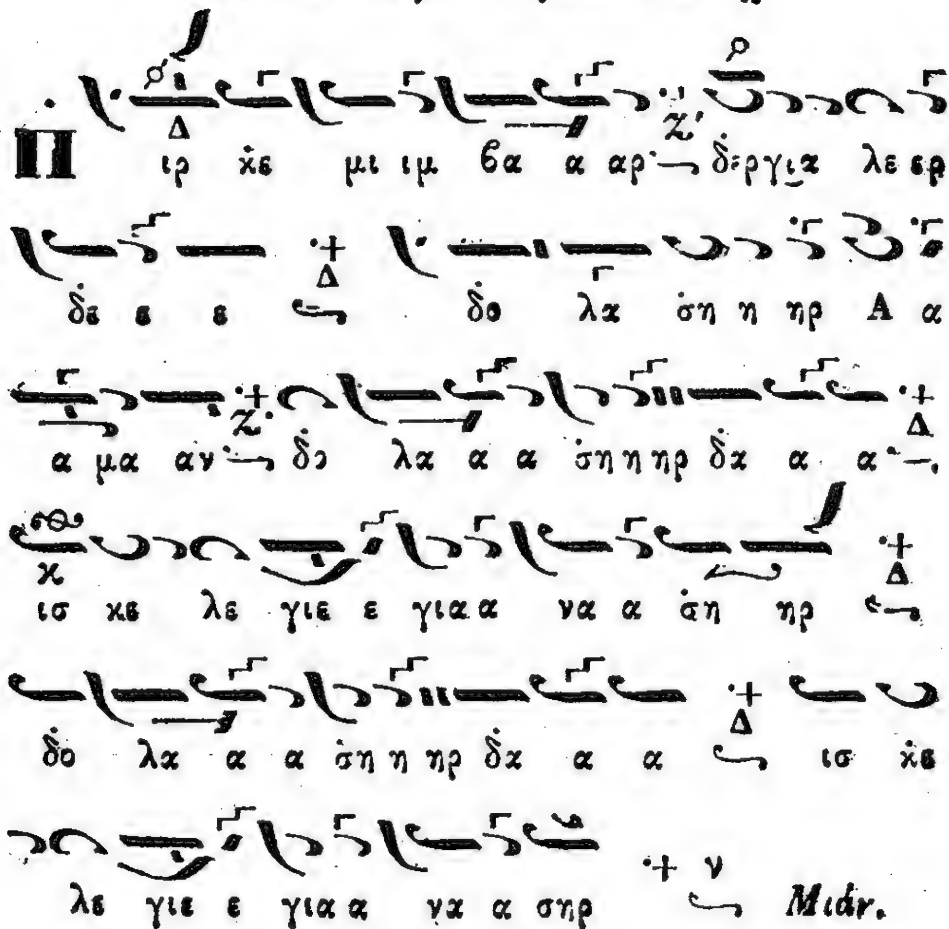 Π ιρ κ̇ε μι ιμ βα α αρ δ̇εργια λε ερ
δ̇ε ε ε δ̇ο λα σ̇η η ηρ Α α
α μα αν δ̇ο λα α α σ̇η η ηρ δ̇α α α
ισ κε λε γιε ε για α να α σ̇η ηρ
δ̇ο λα α α σ̇η η ηρ δ̇α α α ισ κ̇ε
λε γιε ε για α να α σηρ Μιάν.